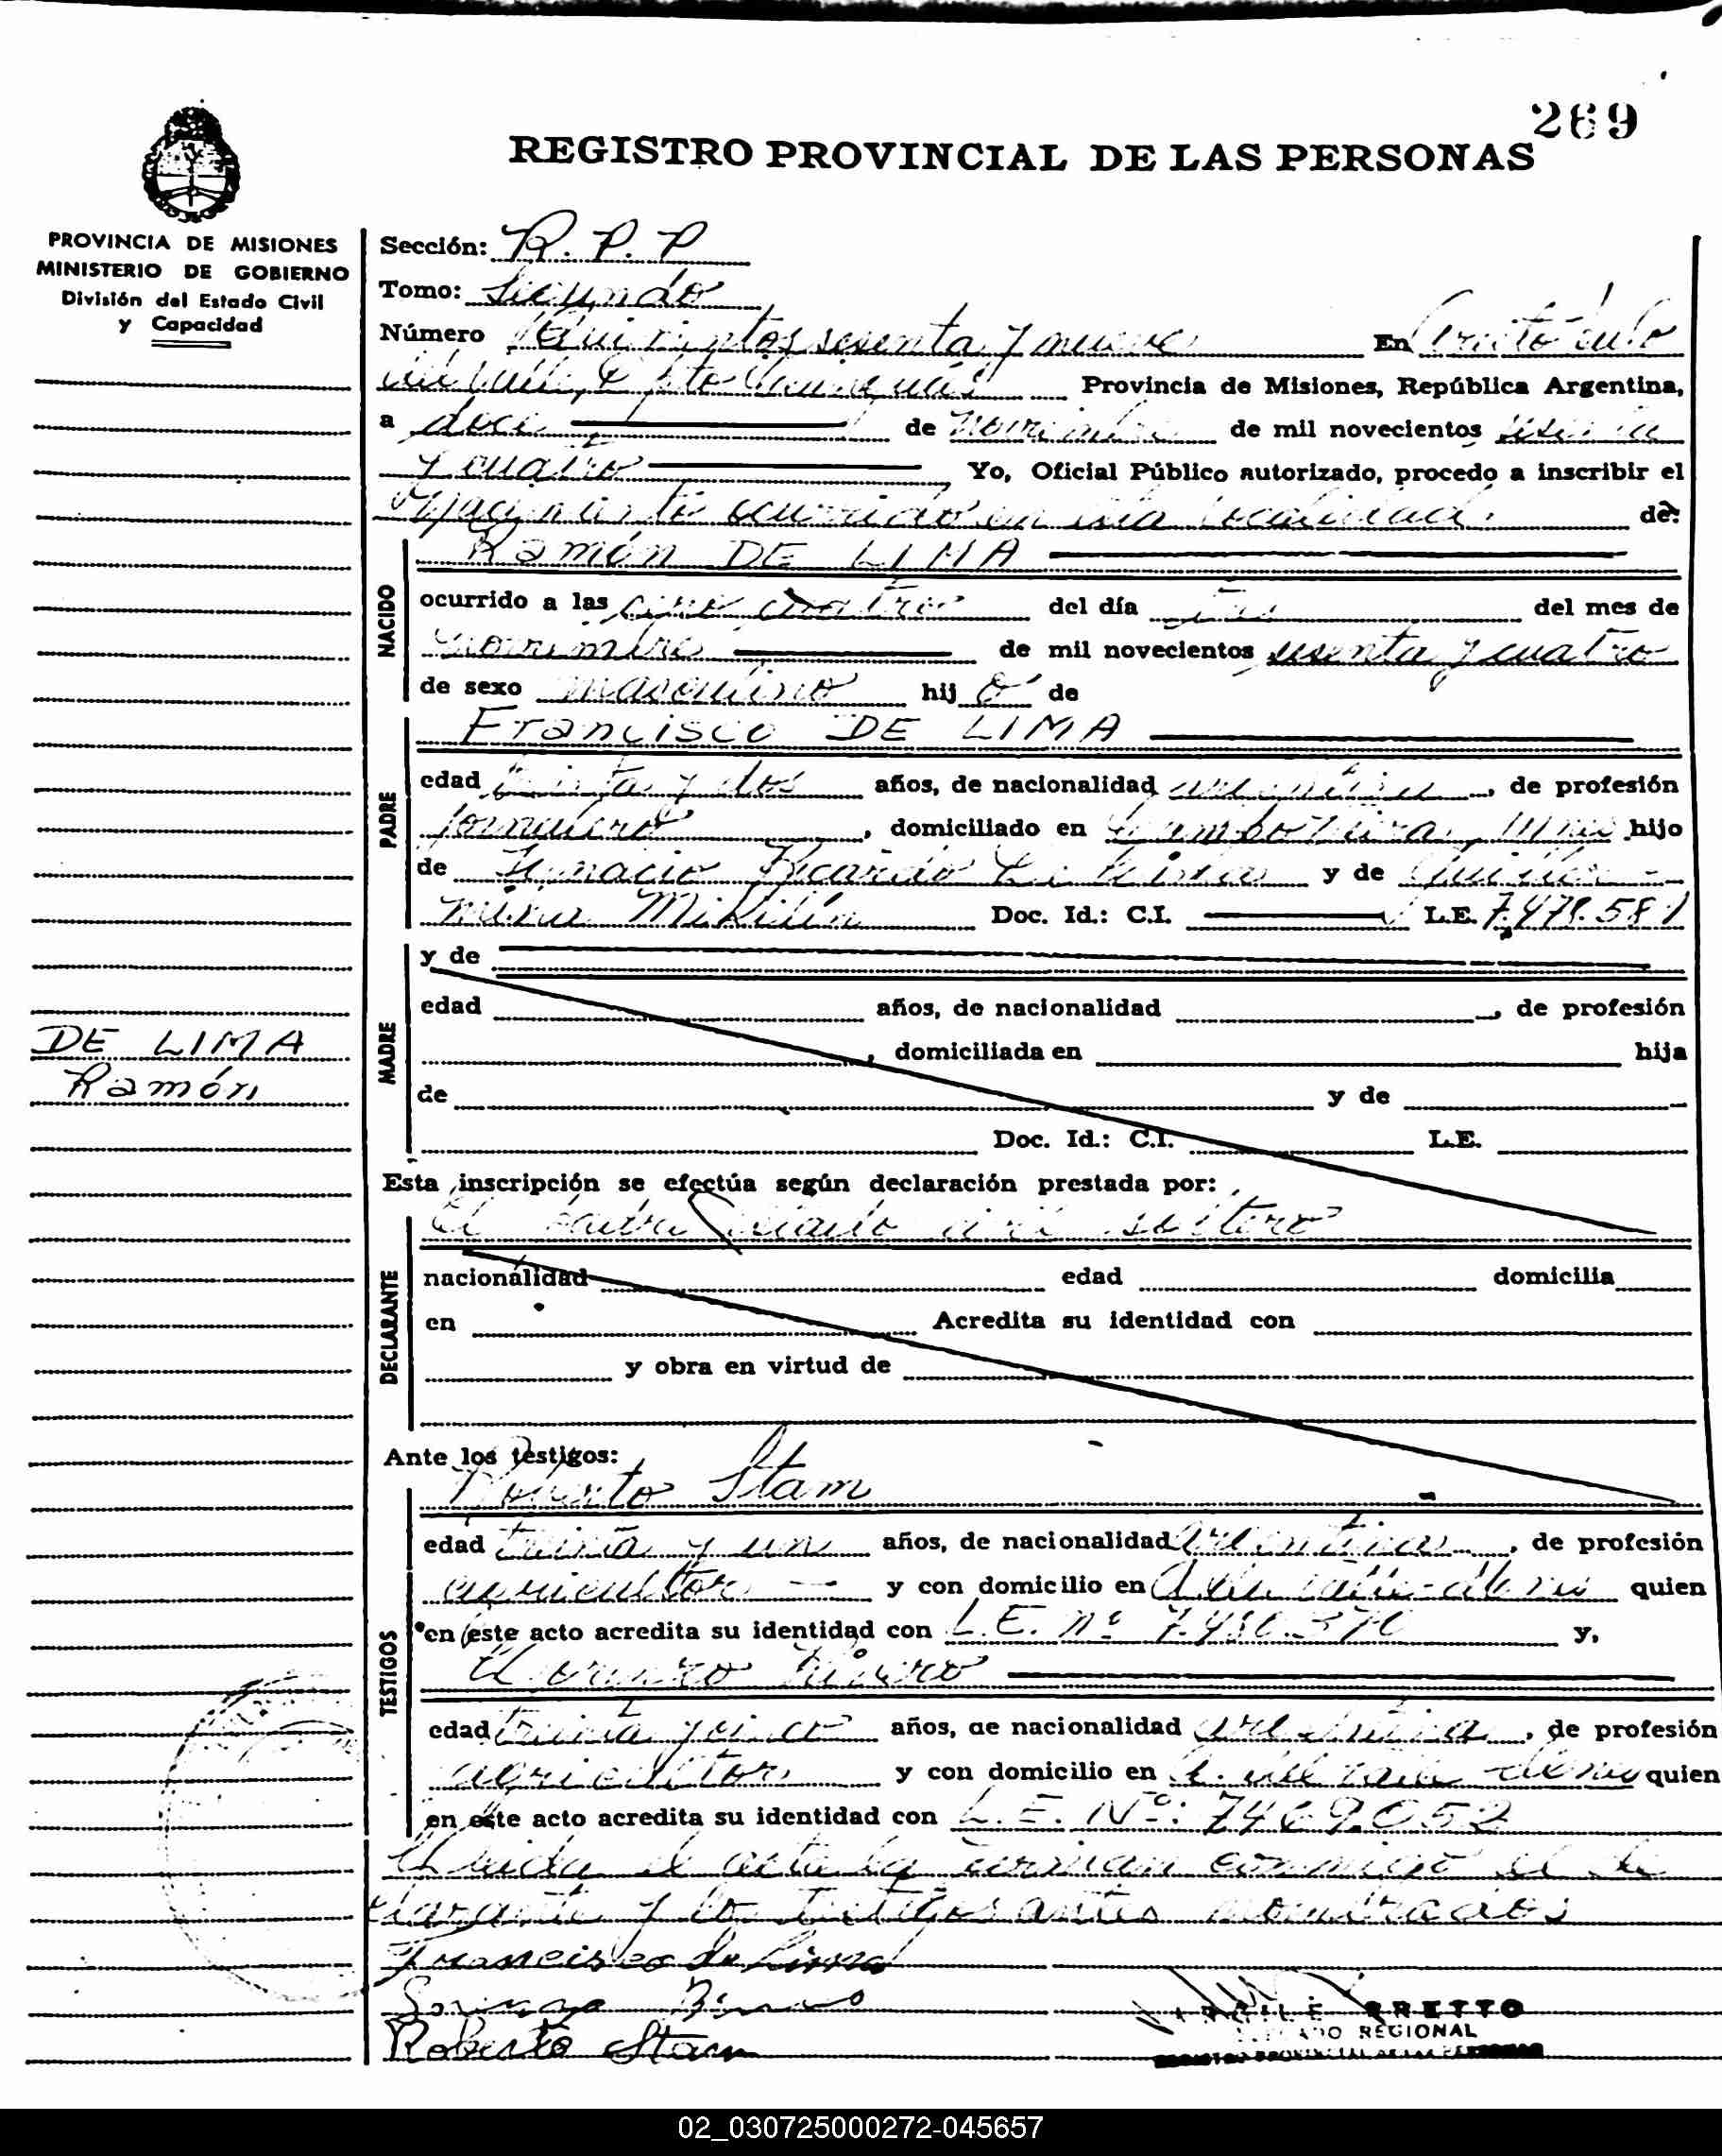 269
REGISTRO PROVINCIAL DE LAS PERSONAS
PROVINCIA DE MISIONES
MINISTERIO DE GOBIERNO
División del Estado Civil
y Capacidad
Sección: R. P. P
Tomo: Segundo
Número Quinientos sesenta y nueve En Aristóbulo
del Valle, Dpto Cainguás Provincia de Misiones, República Argentina,
a doce de noviembre de mil novecientos sesenta
y cuatro Yo, Oficial Público autorizado, procedo a inscribir el
Nacimiento ocurrido en esta localidad de:
Ramón DE LIMA
NACIDO
ocurrido a las del día tres del mes de
noviembre de mil novecientos sesenta y cuatro
de sexo masculino hij o de
Francisco DE LIMA
PADRE
edad treinta y dos años, de nacionalidad argentina, de profesión
jornalero, domiciliado en hijo
de Ignacio Ricardo De Lima y de
Doc. Id.: C.I. L.E. 7.478.581
MADRE
y de
edad años, de nacionalidad , de profesión
, domiciliada en hija
de y de
Doc. Id.: C.I. L.E.
DE LIMA
Ramón
Esta inscripción se efectúa según declaración prestada por:
El padre estado civil soltero
DECLARANTE
nacionalidad edad domicilia
en Acredita su identidad con
y obra en virtud de
Ante los testigos:
Roberto Stam
TESTIGOS
edad treinta y un años, de nacionalidad argentina, de profesión
agricultor y con domicilio en A. del Valle quien
en este acto acredita su identidad con L.E. nº 7.480.370 y,
Lorenzo
edad treinta y cinco años, de nacionalidad argentina, de profesión
agricultor y con domicilio en A. del Valle quien
en este acto acredita su identidad con L.E. Nº: 7469.052
leida el acta la firman conmigo el de
clarante y los testigos antes nombrados
Francisco de Lima
Roberto Stam
BRETTO
REGIONAL
REGISTRO PROVINCIAL DE LAS PERSONAS
02_030725000272-045657